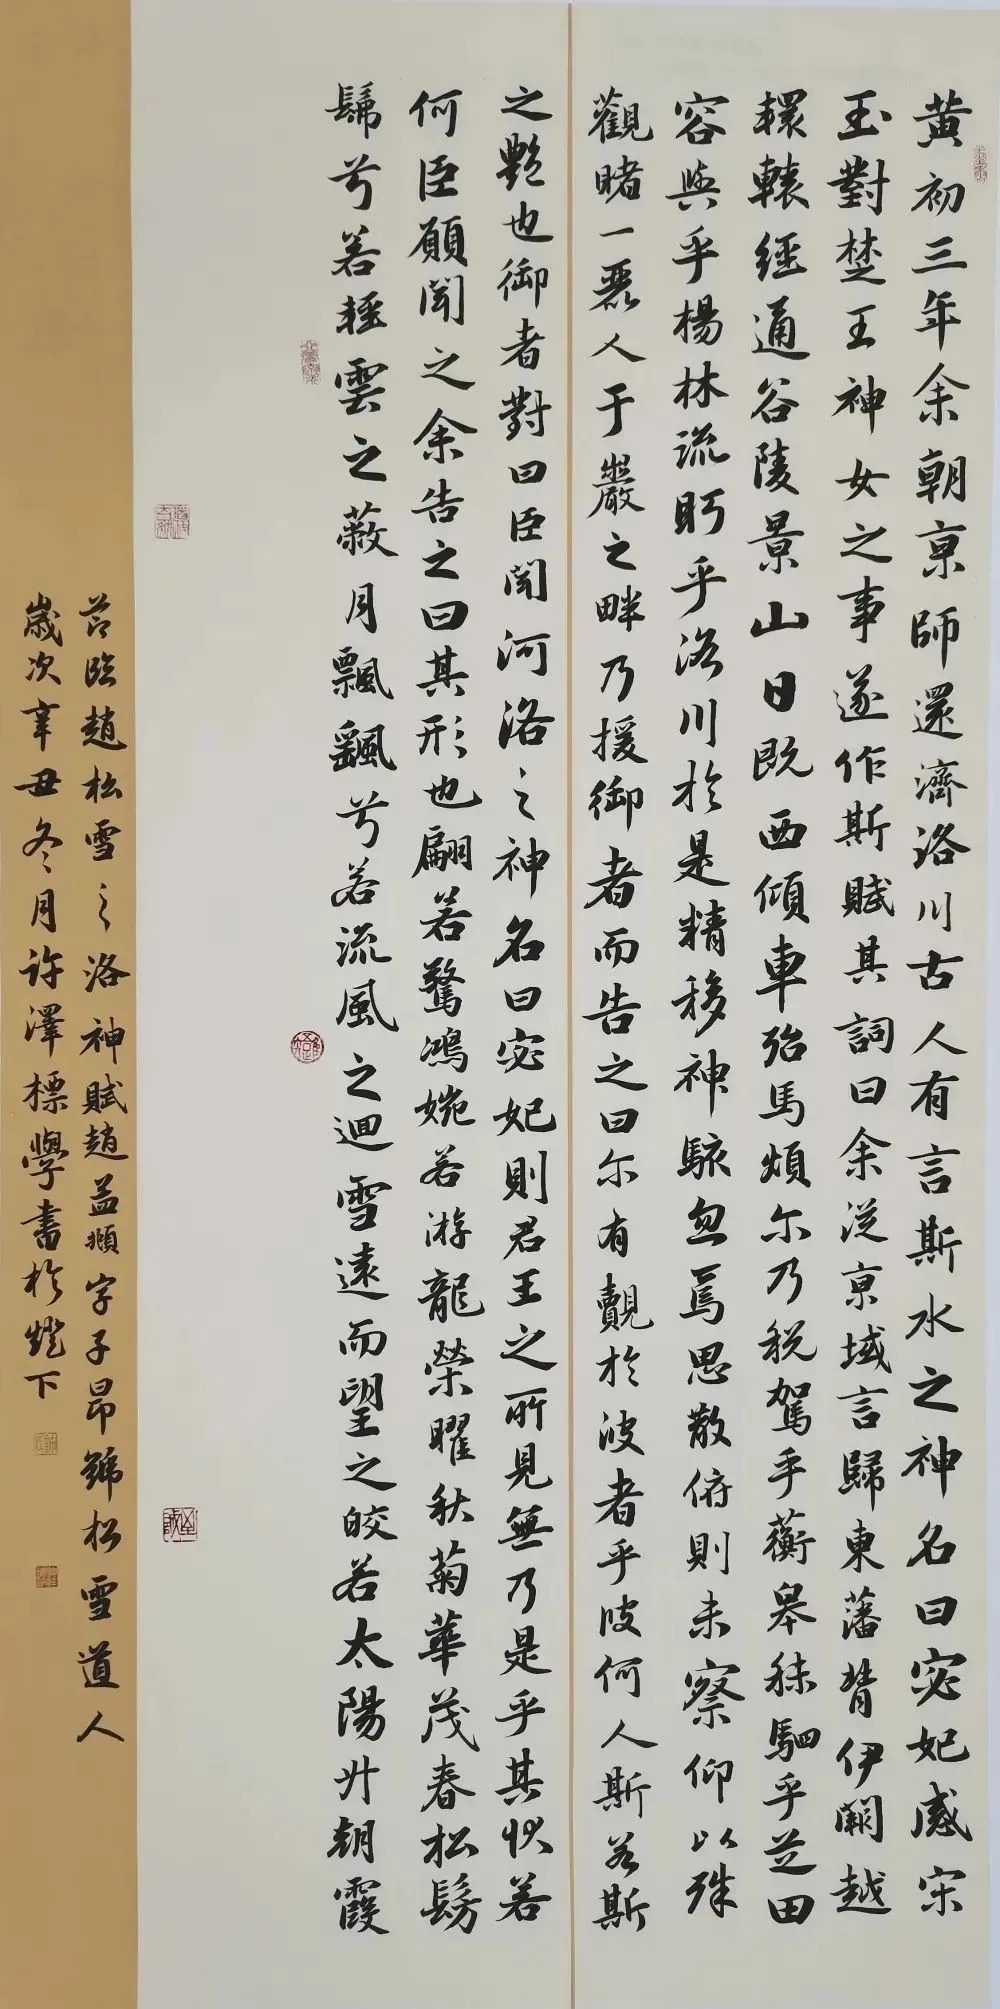 黄初三年余朝京師還濟洛川古人有言斯水之神名曰宓妃感宋
玉對楚王神女之事遂作斯賦其詞曰余從京域言歸東藩背伊闕越
轘轅經通谷陵景山日既西傾車殆馬煩尔乃税駕乎蘅皋秣駟乎芝田
容與乎楊林流眄乎洛川於是精移神駭忽焉思散俯則未察仰以殊
觀睹一麗人于巖之畔乃援御者而告之曰尔有觀於彼者乎彼何人斯若斯
之艷也御者對曰臣聞河洛之神名曰宓妃則君王之所見無乃是乎其狀若
何臣願聞之余告之曰其形也翩若驚鴻婉若游龍榮曜秋菊華茂春松髣
髴兮若輕雲之蔽月飄颻兮若流風之迴雪遠而望之皎若太陽升朝霞
節臨趙松雪之洛神賦趙孟頫字子昂號松雪道人
歲次辛丑冬月許澤標學書於燈下